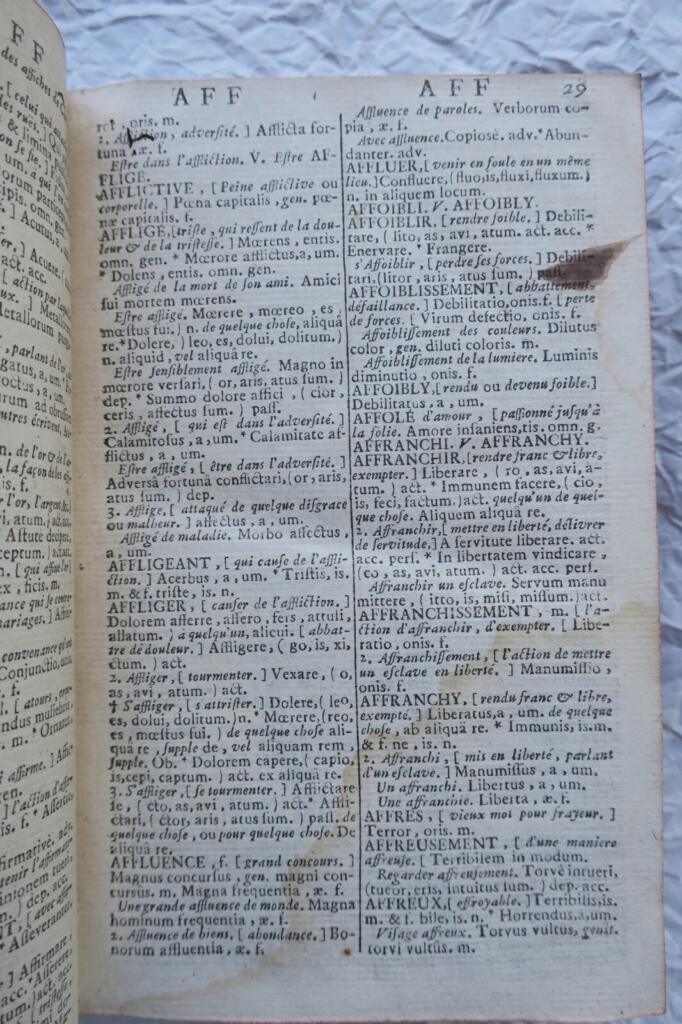 AFF
AFF
29
ret, oris. m.
2. Affliction, adversité. ] Afflicta for-
tuna, æ. f.
Estre dans l'affliction. V. Estre AF-
FLIGE.
AFFLICTIVE, [ Peine afflictive ou
corporelle. ] Pœna capitalis, gen. pœ-
næ capitalis. f.
AFFLIGÉ, [ triste, qui ressent de la dou-
leur & de la tristesse. ] Mœrens, entis.
omn. gen. * Mœrore afflictus, a, um.
* Dolens, entis. omn. gen.
Affligé de la mort de son ami. Amici
sui mortem mœrens.
Estre affligé. Mœrere, mœreo, es,
mœstus fui. ) n. de quelque chose, aliquâ
re. * Dolere, ) leo, es, dolui, dolitum. )
n. aliquid, vel aliquâ re.
Estre sensiblement affligé. Magno in
mœrore versari, ( or, aris, atus sum. )
dep. * Summo dolore affici, ( cior,
ceris, affectus sum. ) pass.
2. Affligé, [ qui est dans l'adversité. ]
Calamitosus, a, um. * Calamitate af-
flictus, a, um.
Estre affligé, [ être dans l'adversité. ]
Adversâ fortunâ conflictari, ( or, aris,
atus sum. ) dep.
3. Affligé, [ attaqué de quelque disgrace
ou malheur. ] affectus, a, um.
Affligé de maladie. Morbo affectus,
a, um.
AFFLIGEANT, [ qui cause de l'affli-
ction. ] Acerbus, a, um. * Tristis, is.
m. & f. triste, is. n.
AFFLIGER, [ causer de l'affliction. ]
Dolorem afferre, affero, fers, attuli,
allatum. ) à quelqu'un, alicui. [ abbat-
tre de douleur. ] Affligere, ( go, is, xi,
ctum. ) act.
2. Affliger, [ tourmenter. ] Vexare, ( o,
as, avi, atum. ) act.
† S'affliger, [ s'attrister. ] Dolere, ( leo,
es, dolui, dolitum. ) n. * Mœrere, ( reo,
es, mœstus fui. ) de quelque chose ali-
quâ re, supple de, vel aliquam rem,
supple. Ob. * Dolorem capere, ( capio,
is, cepi, captum. ) act. ex aliqua re.
3. S'affliger, [ se tourmenter. ] Afflictare
se, ( cto, as, avi, atum. ) act. * Affli-
ctari, ( ctor, aris, atus sum. ) pass. de
quelque chose, ou pour quelque chose. De
aliquâ re.
AFFLUENCE, f. [ grand concours. ]
Magnus concursus, gen. magni con-
cursus. m. Magna frequentia, æ. f.
Une grande affluence de monde. Magna
hominum frequentia, æ. f.
2. Affluence de biens, [ abondance. ] Bo-
norum affluentia, æ. f.
Affluence de paroles. Verborum co-
pia, æ. f.
Avec affluence. Copiosè. adv. * Abun-
danter. adv.
AFFLUER, [ venir en foule en un même
lieu. ] Confluere, ( fluo, is, fluxi, fluxum. )
n. in aliquem locum.
AFFOIBLI. V. AFFOIBLY.
AFFOIBLIR, [ rendre foible. ] Debili-
tare, ( lito, as, avi, atum. act. acc. *
Enervare. * Frangere.
s'Affoiblir, [ perdre ses forces. ] Debili-
tari, (litor, aris, atus sum. ) pass.
AFFOIBLISSEMENT, [ abbattement,
défaillance. ] Debilitatio, onis. f. [ perte
de forces. [ Virum defectio, onis. f.
Affoiblissement des couleurs. Dilutus
color, gen. diluti coloris. m.
Affoiblissement de la lumiere. Luminis
diminutio, onis. f.
AFFOIBLY, [ rendu ou devenu foible. ]
Debilitatus, a, um.
AFFOLÉ d'amour, [ passionné jusqu'à
la folie. Amore insaniens, tis. omn. g.
AFFRANCHI. V. AFFRANCHY.
AFFRANCHIR, [ rendre franc & libre,
exempter. ] Liberare, ( ro, as, avi, a-
tum. ) act. * Immunem facere, ( cio,
is, feci, factum. ) act. quelqu'un de quel-
que chose. Aliquem aliquâ re.
2. Affranchir, [ mettre en liberté, délivrer
de servitude, ] A servitute liberare. act.
acc. pers. * In libertatem vindicare,
( co, as, avi, atum. ) act. acc. pers.
Affranchir un esclave. Servum manu
mittere, ( itto, is, misi, missum. ) act.
AFFRANCHISSEMENT, m. [ l'a-
ction d'affranchir, d'exempter. [ Libe-
ratio, onis. f.
2. Affranchissement, [ l'action de mettre
un esclave en liberté. ] Manumissio,
onis. f.
AFFRANCHY, [ rendu franc & libre,
exempté. ] Liberatus, a, um. de quelque
chose, ab aliquâ re. * Immunis, is. m.
& f. ne, is. n.
2. Affranchi, [ mis en liberté, parlant
d'un esclave. ] Manumissus, a, um.
Un affranchi. Libertus, a, um.
Une affranchie. Liberta, æ. f.
AFFRES, [ vieux mot pour frayeur. ]
Terror, oris. m.
AFFREUSEMENT, [ d'une maniere
affreuse. [ Terribilem in modum.
Regarder affreusement. Torvè intueri,
(tueor, eris, intuitus sum. ) dep. acc.
AFFREUX, [ effroyable. ] Terribilis, is.
m. & f. bile, is. n. * Horrendus, a, um.
Visage affreux. Torvus vultus, genit.
torvi vultûs. m.